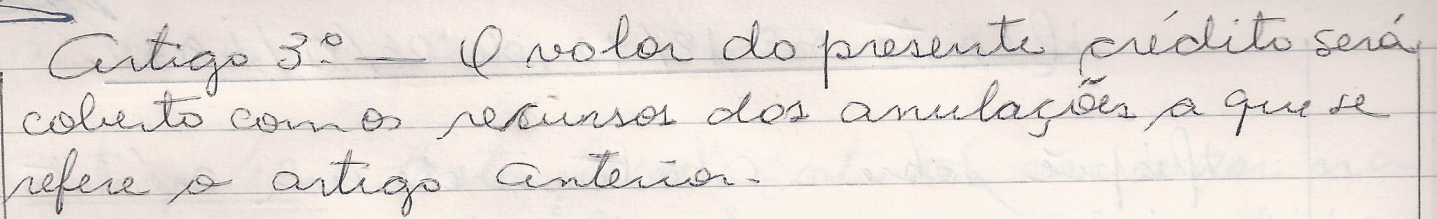 Artigo 3º — O valor do presente crédito será
coberto com os recursos das anulações a que se
refere o artigo anterior.